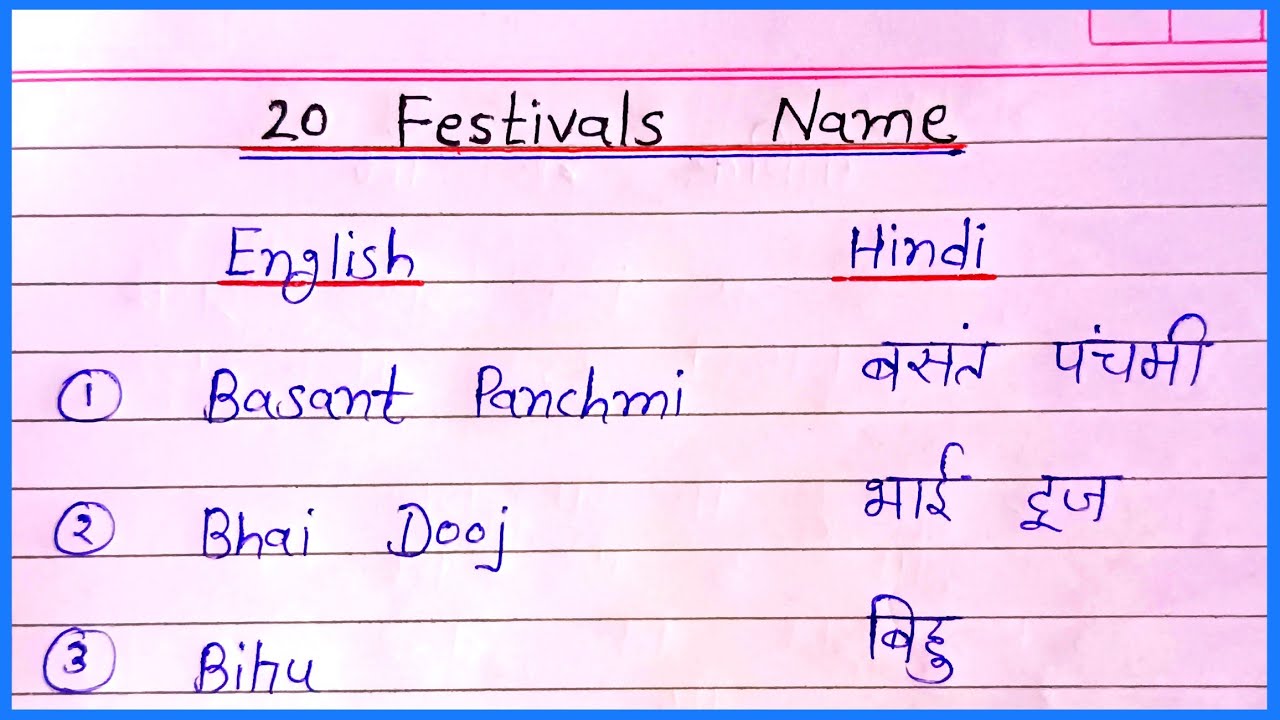 20 Festivals Name
English Hindi
① Basant Panchmi बसंत पंचमी
② Bhai Dooj भाई दूज
③ Bihu बिहु